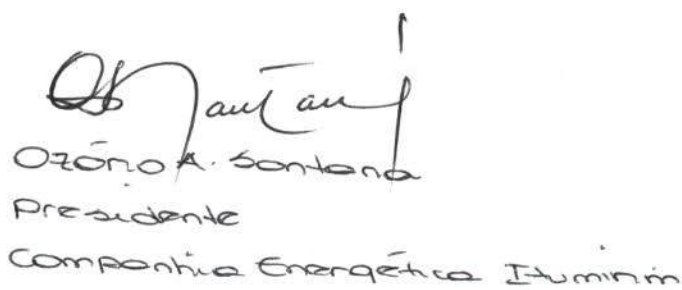 Ozório A. Santana
Presidente
Companhia Energética Itumirim